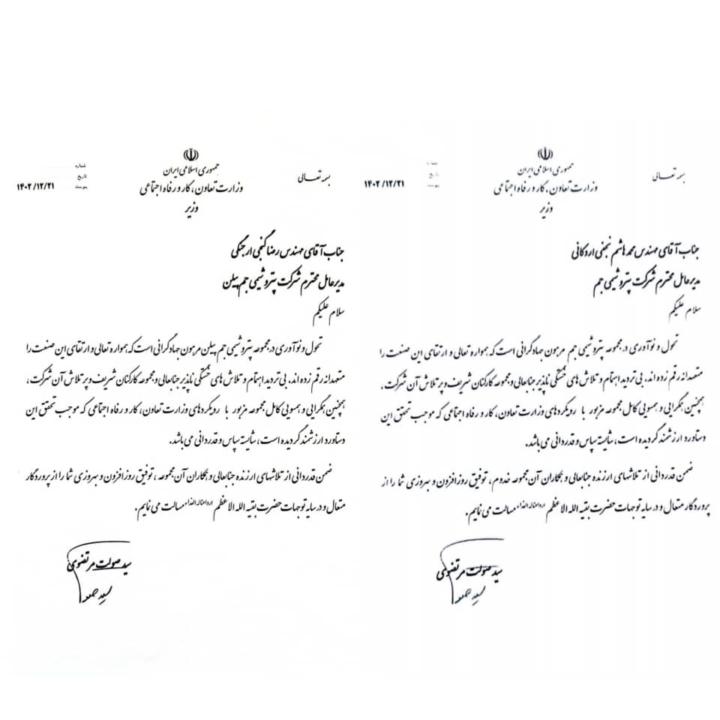 بسمه تعالی
جمهوری اسلامی ایران
وزارت تعاون، کار و رفاه اجتماعی
وزیر
شماره
تاریخ
پیوست
۱۴۰۲/۱۲/۲۱
جناب آقای مهندس محمد هاشم نجفی اردکانی
مدیرعامل محترم شرکت پتروشیمی جم
سلام علیکم
تحول و نوآوری در مجموعه پتروشیمی جم مرهون جهادگرانی است که همواره تعالی و ارتقای این صنعت را
متعهدانه رقم زده اند. بی تردید اهتمام و تلاش های خستگی ناپذیر جنابعالی و مجموعه کارکنان شریف و پر تلاش آن شرکت،
همچنین همگرایی و همسویی کامل مجموعه مزبور با رویکردهای وزارت تعاون، کار و رفاه اجتماعی که موجب تحقق این
دستاورد ارزشمند گردیده است، شایسته سپاس و قدردانی می باشد.
ضمن قدردانی از تلاشهای ارزنده جنابعالی و همکاران آن مجموعه خدوم، توفیق روزافزون و بهروزی شما را از
پروردگار متعال و در سایه توجهات حضرت بقیه الله الاعظم ارواحنا له الفداء مسالت می نمایم.
سید صولت مرتضوی
بسمه تعالی
جمهوری اسلامی ایران
وزارت تعاون، کار و رفاه اجتماعی
وزیر
شماره
تاریخ
پیوست
۱۴۰۲/۱۲/۲۱
جناب آقای مهندس رضا گنجی ارجنکی
مدیرعامل محترم شرکت پتروشیمی جم پیلن
سلام علیکم
تحول و نوآوری در مجموعه پتروشیمی جم پیلن مرهون جهادگرانی است که همواره تعالی و ارتقای این صنعت را
متعهدانه رقم زده اند. بی تردید اهتمام و تلاش های خستگی ناپذیر جنابعالی و مجموعه کارکنان شریف و پر تلاش آن شرکت،
همچنین همگرایی و همسویی کامل مجموعه مزبور با رویکردهای وزارت تعاون، کار و رفاه اجتماعی که موجب تحقق این
دستاورد ارزشمند گردیده است، شایسته سپاس و قدردانی می باشد.
ضمن قدردانی از تلاشهای ارزنده جنابعالی و همکاران آن مجموعه، توفیق روزافزون و بهروزی شما را از پروردگار
متعال و در سایه توجهات حضرت بقیه الله الاعظم ارواحنا له الفداء مسالت می نمایم.
سید صولت مرتضوی